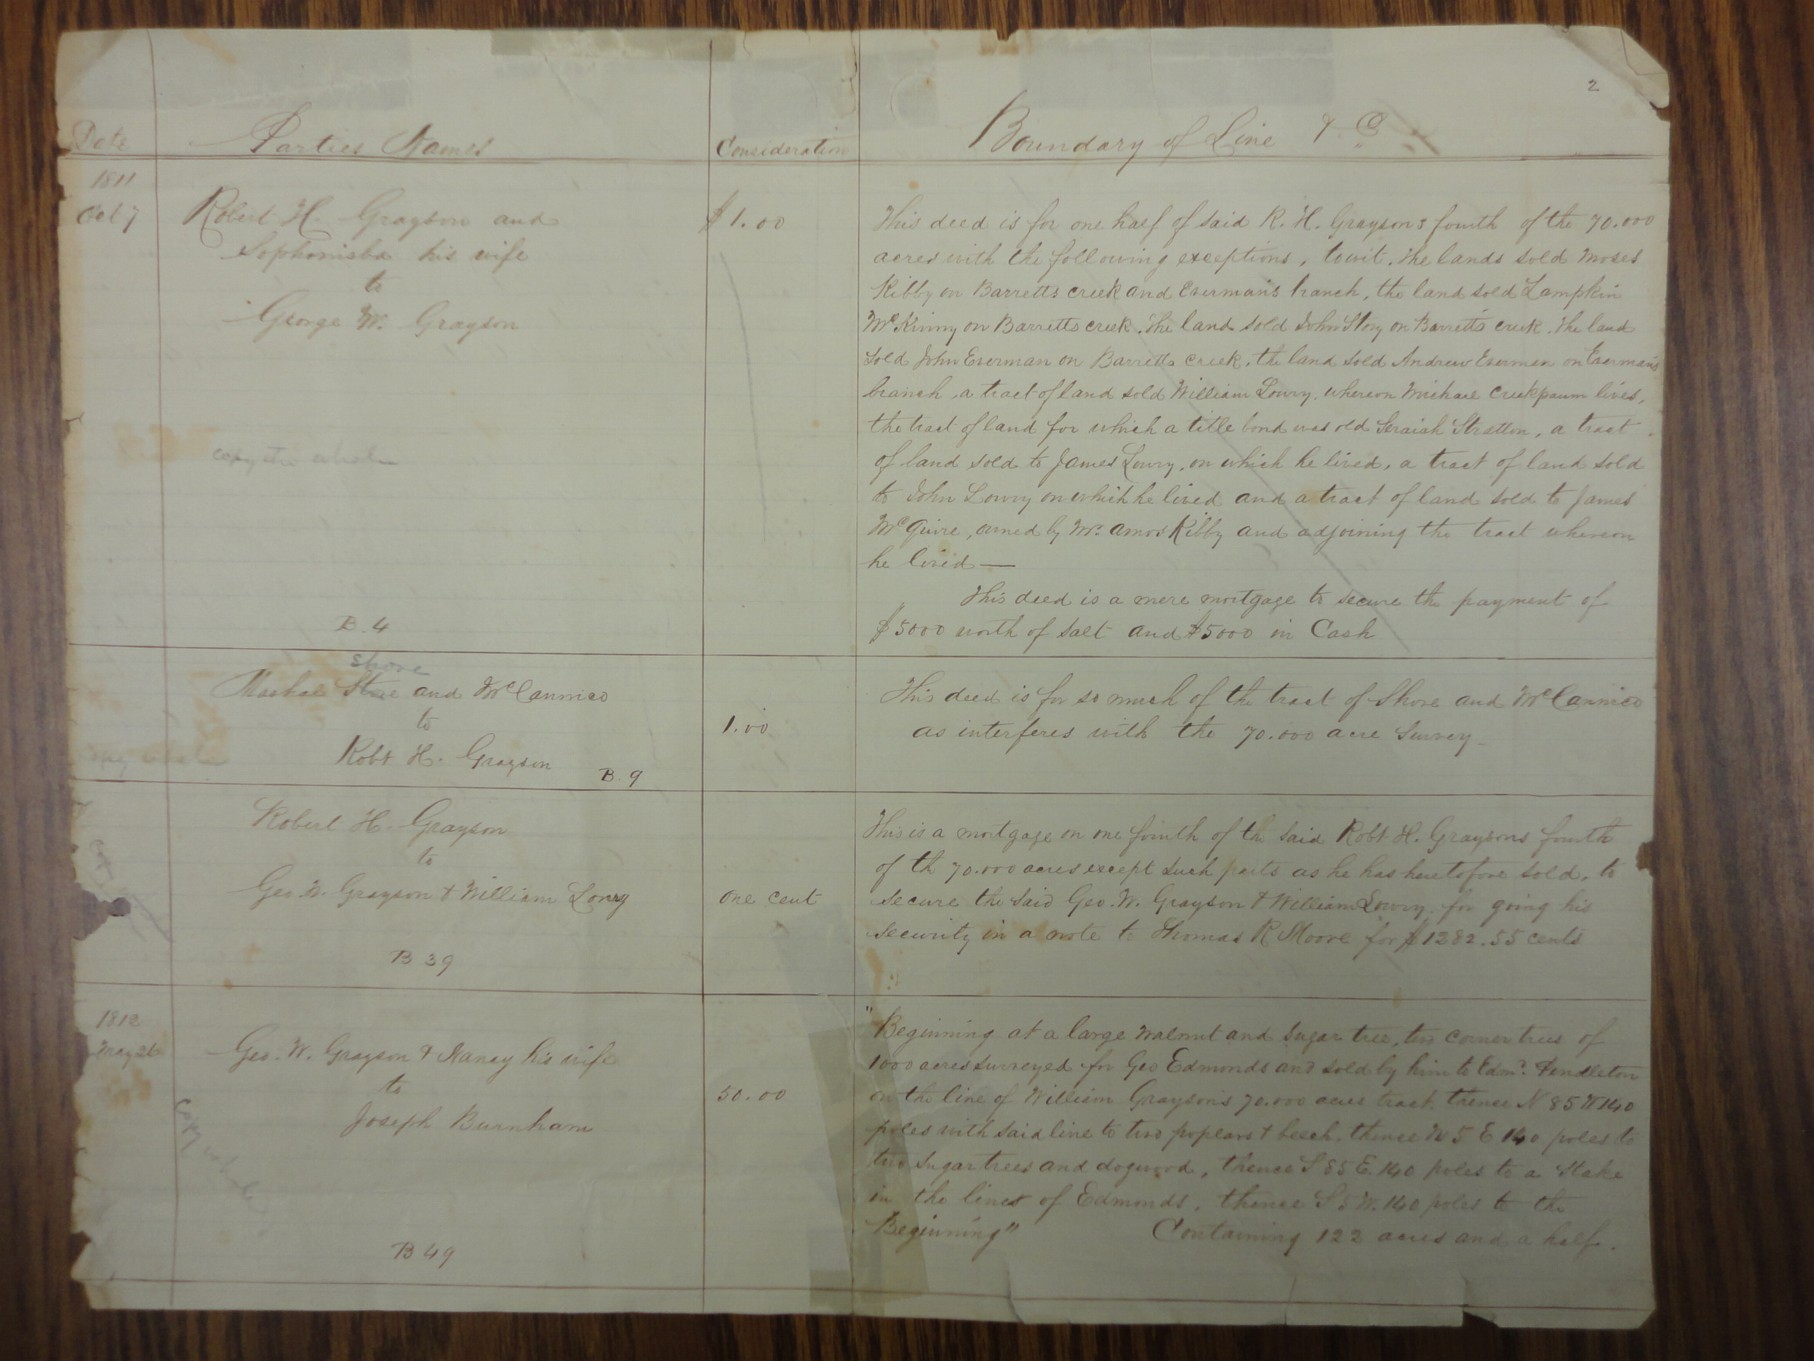 2
Date Parties Names Consideration Boundary of Line & C
1811
Oct 7 Robert H. Grayson and $1.00
Sophonisba his wife
to
George W. Grayson
This deed is for one half of said R. H. Graysons fourth of the 70.000
acres with the following exceptions, towit. The lands sold Moses
Kibby on Barretts creek and Everman's branch, the land sold Lampkin
McKinny on Barretts creek. The land sold John Story on Barretts creek. The land
sold John Everman on Barretts creek. the land sold Andrew Everman on Everman's
branch, a tract of land sold William Lowry. whereon Michael Creekpaum lives,
the tract of land for which a title bond was old Stratton, a tract
of land sold to James Lowry, on which he lived, a tract of land sold
to John Lowry on which he lived and a tract of land sold to James
McGuire, owned by Mr. Amos Kibby and adjoining the tract whereon
he lived —
This deed is a mere mortgage to secure the payment of
$5000 worth of Salt and $5000 in Cash
copy the whole
B. 4
Shore
and McCannico
to
Robt H. Grayson B. 9
1.00
This deed is for so much of the tract of Shore and McCannico
as interferes with the 70.000 acre Survey
Robert H. Grayson
to
Geo. W. Grayson & William Lowry one cent
B 39
This is a mortgage on one fourth of the said Robt H. Graysons fourth
of th 70.000 acres except such parts as he has heretofore sold, to
secure the said Geo. W. Grayson & William Lowry for going his
security in a note to Thomas R Moore for $1282.55 cents
1812
May 26 Geo. W. Grayson & Nancy his wife
to
Joseph Burnham
50.00
copy whole
B 49
"Beginning at a large Walnut and Sugar tree, two corner trees of
1000 acres surveyed for Geo Edmonds and sold by him to Edmd. Pendleton
on the line of William Grayson's 70.000 acres tract. thence N 85 W 140
poles with said line to two poplars & beech. thence N 5 E 140 poles to
two Sugar trees and dogwood, thence S 85 E 140 poles to a Stake
in the lines of Edmonds, thence S 5 W. 140 poles to the
Beginning" Containing 122 acres and a half.